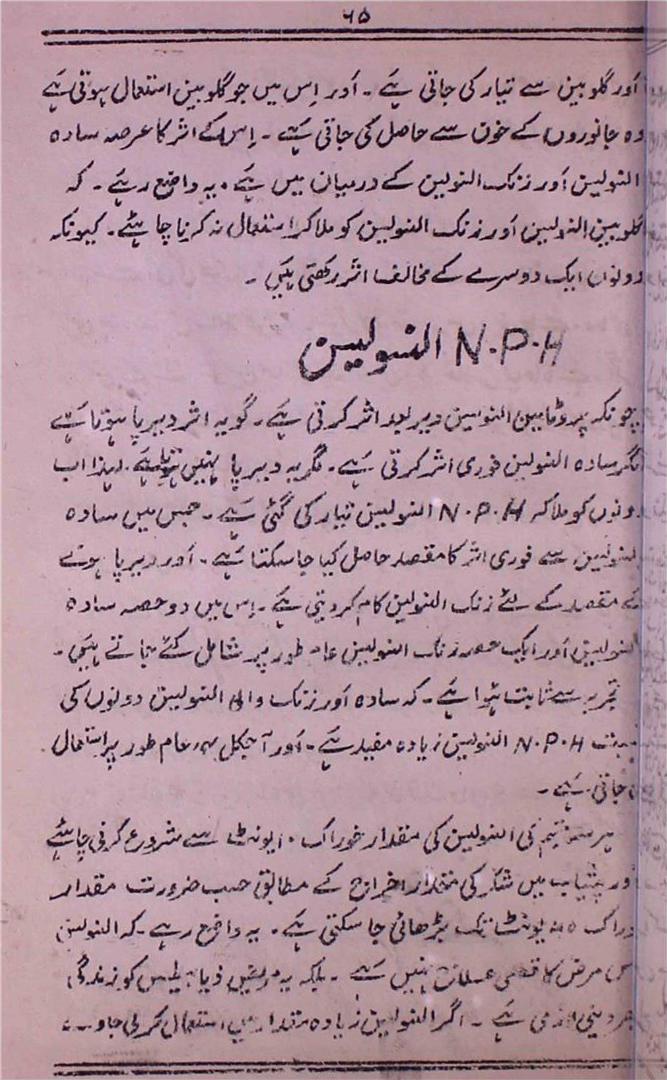 ۶۵
اور گلوبین سے تیار کی جاتی ہے ۔ اور اِس میں جو گلوبین استعمال ہوتی ہے
وہ جانوروں کے خون سے حاصل کی جاتی ہے ۔ اِس کے اثر کا عرصہ سادہ
النولین اور زنک النولین کے درمیان میں ہے ۔ یہ واضع رہے ۔ کہ
گلوبین النولین اور زنک النولین کو ملا کر استعمال نہ کرنا چاہئے ۔ کیونکہ
دونوں ایک دوسرے کے مخالف اثر رکھتی ہیں ۔
N.P.H النسولین
چونکہ پروٹامین النولین دیر بعد اثر کرتی ہے ۔ گو یہ اثر دیرپا ہوتا ہے
مگر سادہ النولین فوری اثر کرتی ہے ۔ مگر یہ دیرپا نہیں ہوتا ہے ۔ لہذا اب
دونوں کو ملا کر N.P.H النولین تیار کی گئی ہے ۔ جس میں سادہ
النولین سے فوری اثر کا مقصد حاصل کیا جا سکتا ہے ۔ اور دیرپا ہونے
کے مقصد کے لئے زنک النولین کام کر دیتی ہے ۔ اِس میں دو حصہ سادہ
النولین اور ایک حصہ زنک النولین عام طور پر شامل کئے جاتے ہیں ۔
تجربہ سے ثابت ہوا ہے ۔ کہ سادہ اور زنک والی النولین دونوں کی
نسبت N.P.H النولین زیادہ مفید ہے ۔ اور آجکل یہی عام طور پر استعمال
کی جاتی ہے ۔
ہر قسم کی النولین کی مقدار خوراک ۱۰ یونٹ سے شروع کرنی چاہئے
اور پیشاب میں شکر کی مقدار اخراج کے مطابق حسب ضرورت مقدار
خوراک یونٹ تک بڑھائی جا سکتی ہے ۔ یہ واضع رہے ۔ کہ النولین
اس مرض کا قطعی علاج نہیں ہے ۔ بلکہ یہ مریض ذیابیطس کو زندگی
بھر دینی لازمی ہے ۔ اگر النولین زیادہ مقدار میں استعمال کر لی جاوے